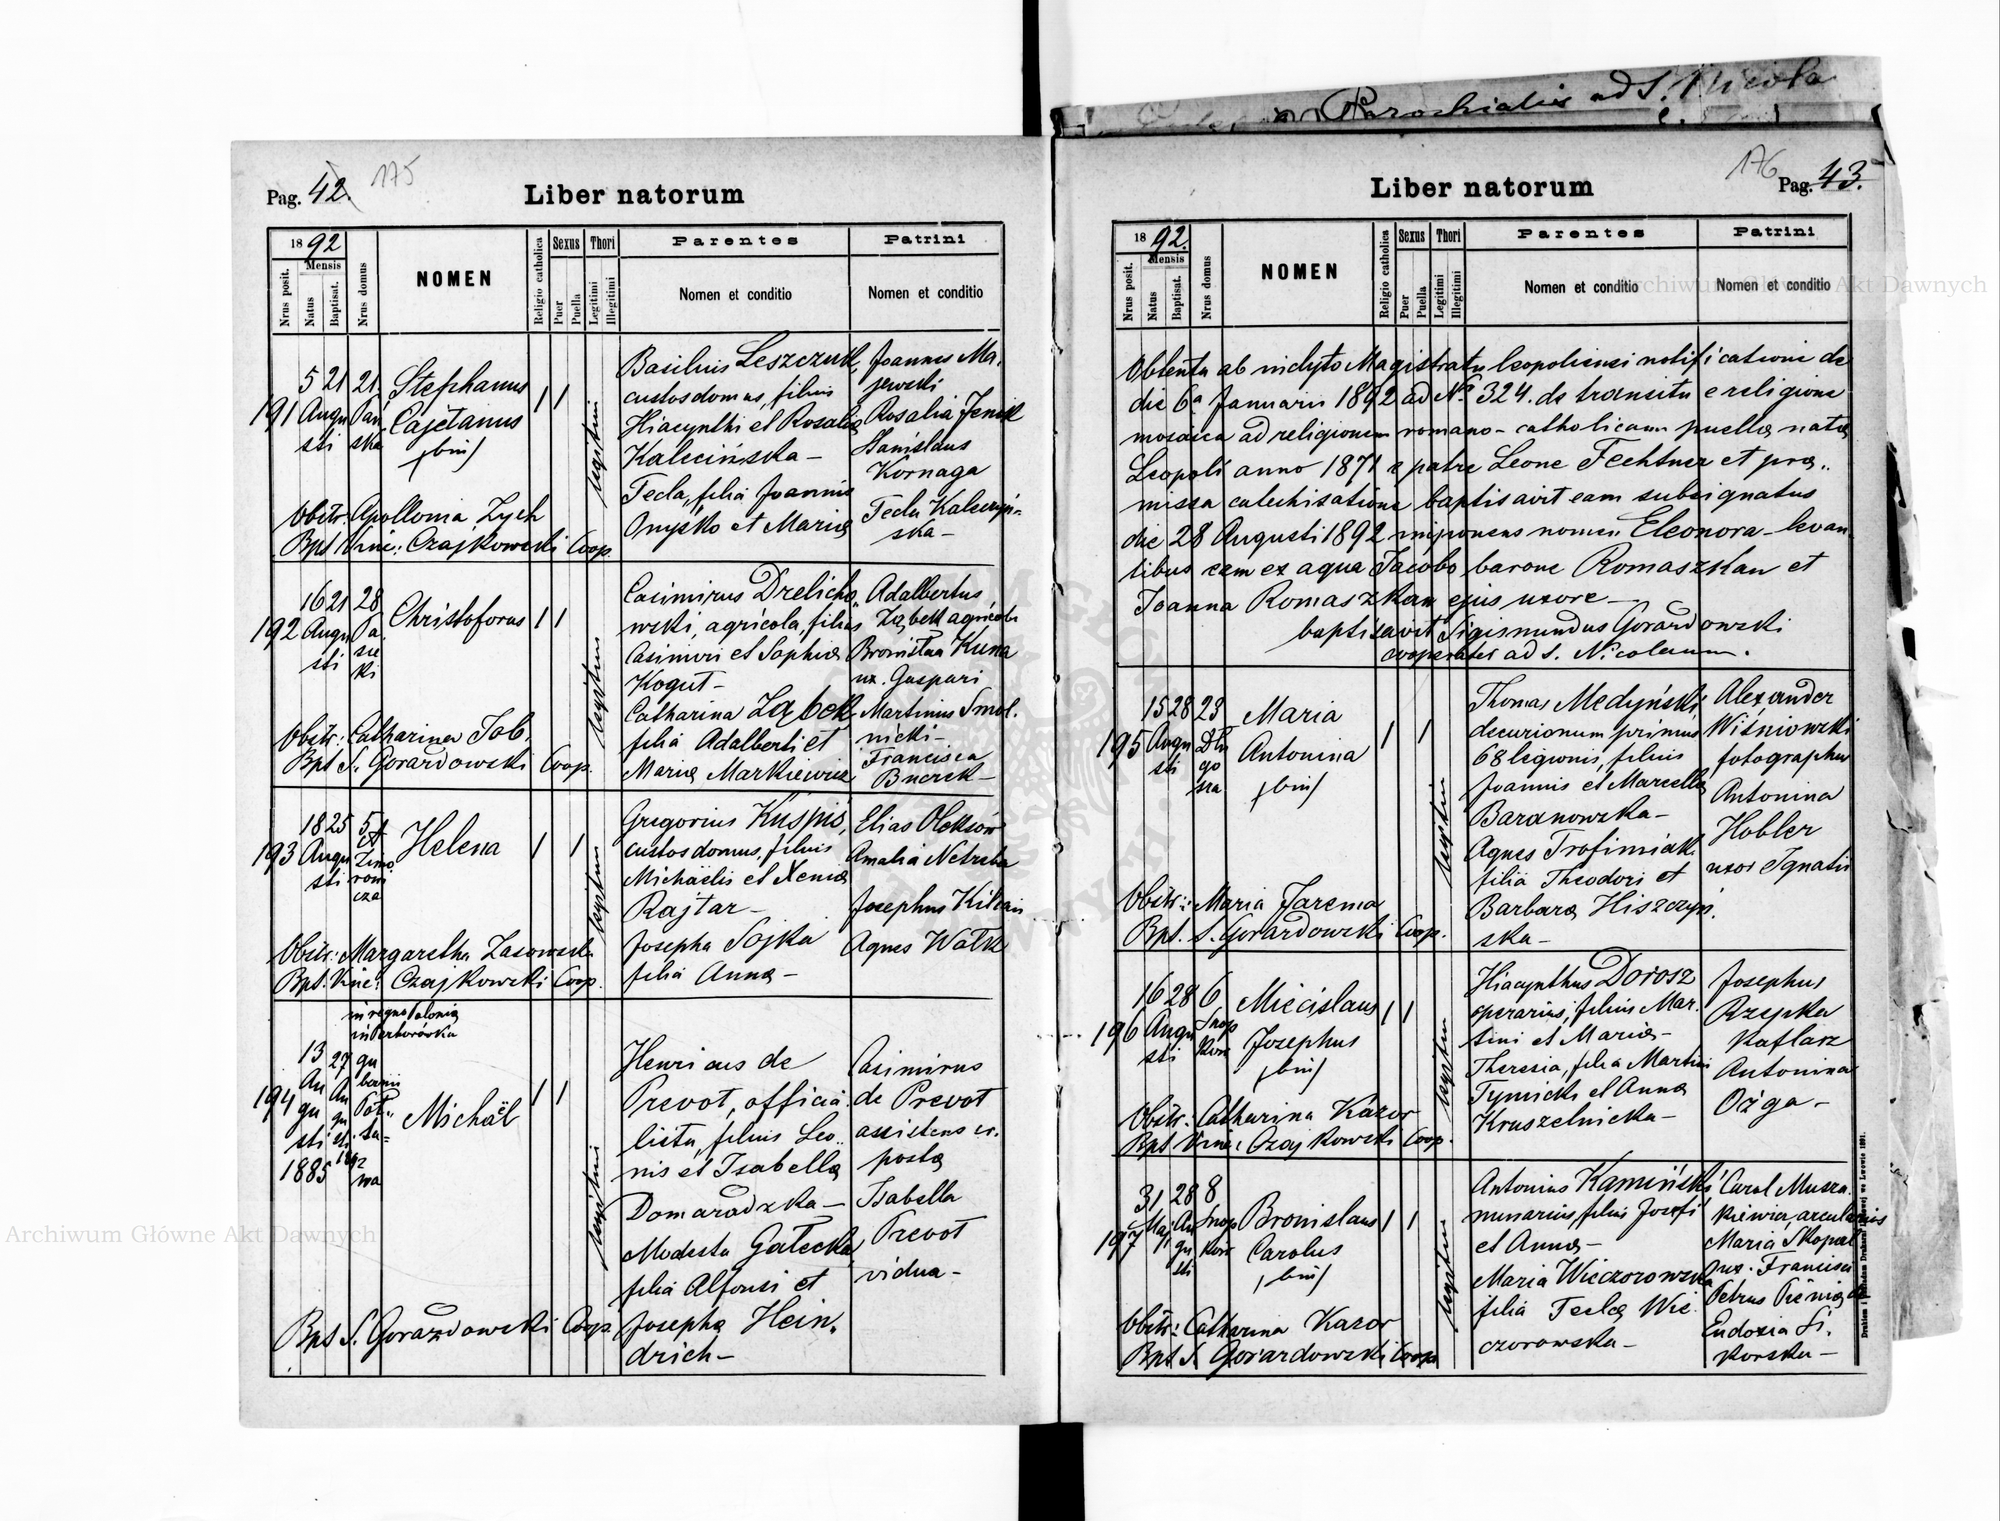 Parochialis ad S. Nicola
Pag. 42. 175
Liber natorum
1892
Mensis
Nrus posit.
Natus
Baptisat.
Nrus domus
NOMEN
Religio catholica
Sexus
Puer
Puella
Thori
Legitimi
Illegitimi
Parentes
Nomen et conditio
Patrini
Nomen et conditio
191
5 Augu
sti
21
21.
Pań
ska
Stephanus
Cajetanus
(bin)
legitim
Basilius Leszczuk,
custos domus, filius
Hiacynthi et Rosalia
Kalecińska –
Tecla, filia Joannis
Onyśko et Maria
Joannes Ma-
jewski
Rosalia Jenik
Stanislaus
Kornaga
Tecla Kaleczyń-
ska –
Obstr: Apollonia Zych
Bpt Vinc: Czajkowski Coop.
192
16 Augu
sti
21
28
Pa
sie
ki
Christoforus
legitim
Casimirus Drelicho
wski, agricola, filius
Casimiri et Sophia
Kogut –
Catharina Ząbek
filia Adalberti et
Maria Markiewicz
Adalbertus
Ząbek agricola
Bronisłaa Kuna
ux. Gaspari
Martinus Smol-
nicki –
Francisca
Obstr: Catharina Job.
Bpt S. Gorazdowski Coop.
193
18 Augu
sti
25
5A
Zimo
rowi
cza
Helena
legitim
Gregorius Kuspiś,
custos domus, filius
Michaëlis et Xenia
Rajtar –
Josepha Sojka
filia Anna –
Elias Oleksów
Amalia Netreba
Josephus Kilian
Agnes Wołk
Obstr: Margaretha Lasowsk
Bpt. Vinc: Czajkowski Coop.
in regno Polonia
194
13
Au
gu
sti
1885
27
Au
gu
sti
1892
gu
bernii
Poł-
ta-
wa
Michaël
legitim
Henricus de
Prevot, officia-
lista, filius Leo-
nis et Isabella
Domaradzka –
Modesta Gałecka,
filia Alfonsi et
Josepha Hein-
drich –
Casimirus
de Prevot
assistens cr.
posta
Isabella
Prevot
vidua –
Bpt S. Gorazdowski Coop.
176 Pag. 43.
Liber natorum
1892.
Mensis
Nrus posit.
Natus
Baptisat.
Nrus domus
NOMEN
Religio catholica
Sexus
Puer
Puella
Thori
Legitimi
Illegitimi
Parentes
Nomen et conditio
Patrini
Nomen et conditio
Obtenta ab inclyto Magistratu leopoliensi notificatione de
die 6a Januarii 1892 ad No 324. de transitu e religione
mosaica ad religionem romano-catholicam puella nata
Leopoli anno 1871 e patre Leone Fechtner et prae-
missa catechisatione baptisavit eam subsignatus
die 28 Augusti 1892 imponens nomen Eleonora – levan
tibus eam ex aqua Jacobo barone Romaszkan et
Joanna Romaszkan ejus uxore –
baptisavit Sigismundus Gorazdowski
cooperator ad S. Nicolaum.
195
15 Augu
sti
28
23
Dłu
go
sza
Maria
Antonina
(bin)
legitim
Thomas Medyński,
decurionum primus
68 legionis, filius
Joannis et Marcella
Baranowska –
Agnes Trofimiak
filia Theodori et
Barbara Hiszczyń-
ska –
Alexander
Wiśniowski
fotographus
Antonina
Hobler
uxor Ignatii
Obstr: Maria Jarema
Bpt. S. Gorazdowski Coop.
196
16 Augu
sti
28
6
Snop
kow
Miecislaus
Josephus
(bin)
legitim
Hiacynthus Dorosz
operarius, filius Mar-
tini et Maria –
Theresia, filia Martini
Tymicki et Anna
Kruszelnicka –
Josephus
Rzepka
kaflarz
Antonina
Ożga –
Obstr: Catharina Kazor
Bpt. Vinc: Czajkowski Coop.
197
31
Maj
28
Au
gu
sti
8
Snop
kow
Bronislaus
Carolus
(bin)
legitim
Antonius Kamiński
murarius, filius Josefi
et Anna –
Maria Wieczorowska
filia Tecla Wie
czorowska –
Carol Musza-
kiewicz, arcularius
Maria Skopal
ux. Francisci
Petrus
Eudoxia Si-
korska –
Obstr: Catharina Kazor
Bpt S. Gorazdowski Coop.
Archiwum Główne Akt Dawnych
Archiwum Główne Akt Dawnych